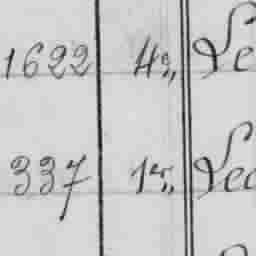 1622 4º,, Le
337 1º,, Lec